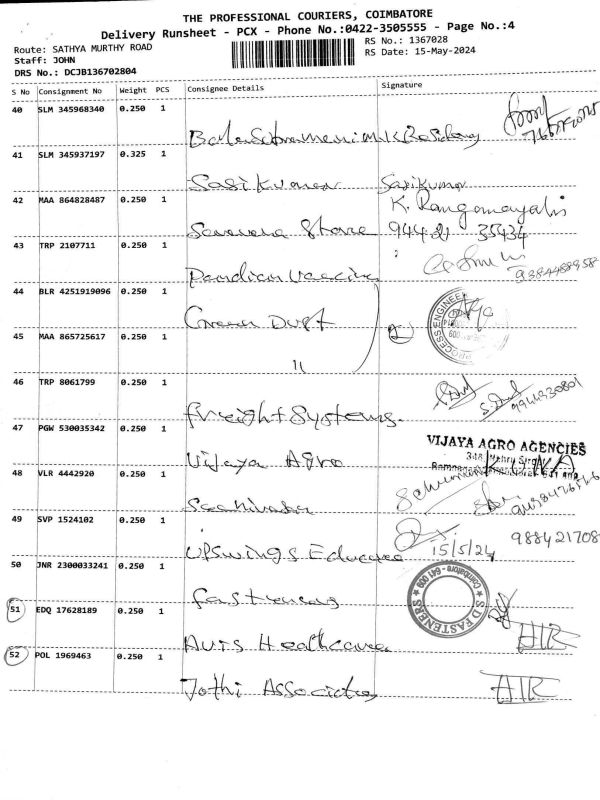 THE PROFESSIONAL COURIERS, COIMBATORE
Delivery Runsheet - PCX - Phone No.:0422-3505555 - Page No.:4
Route: SATHYA MURTHY ROAD
RS No.: 1367028
Staff: JOHN
RS Date: 15-May-2024
DRS No.: DCJB136702804
S No Consignment No Weight PCS Consignee Details Signature
40 SLM 345968340 0.250 1
41 SLM 345937197 0.325 1
Sasikumar Sasikumar
42 MAA 864828487 0.250 1
K. Rangamayahi
Saravana Store 94421 35434
43 TRP 2107711 0.250 1
Pandian Vaccine
44 BLR 4251919096 0.250 1
Green Dust
PROCESS ENGINEE
45 MAA 865725617 0.250 1
"
46 TRP 8061799 0.250 1
freight systems.
47 PGW 530035342 0.250 1
VIJAYA AGRO AGENCIES
Vijaya Agro
48 VLR 4442920 0.250 1
49 SVP 1524102 0.250 1
Upswings Educare
15/5/24
988421708
50 JNR 2300033241 0.250 1
S D FASTENERS
Coimbatore - 641 009
51 EDQ 17628189 0.250 1
Avis Healthcare
AIR
52 POL 1969463 0.250 1
Jothi Associates
AIR